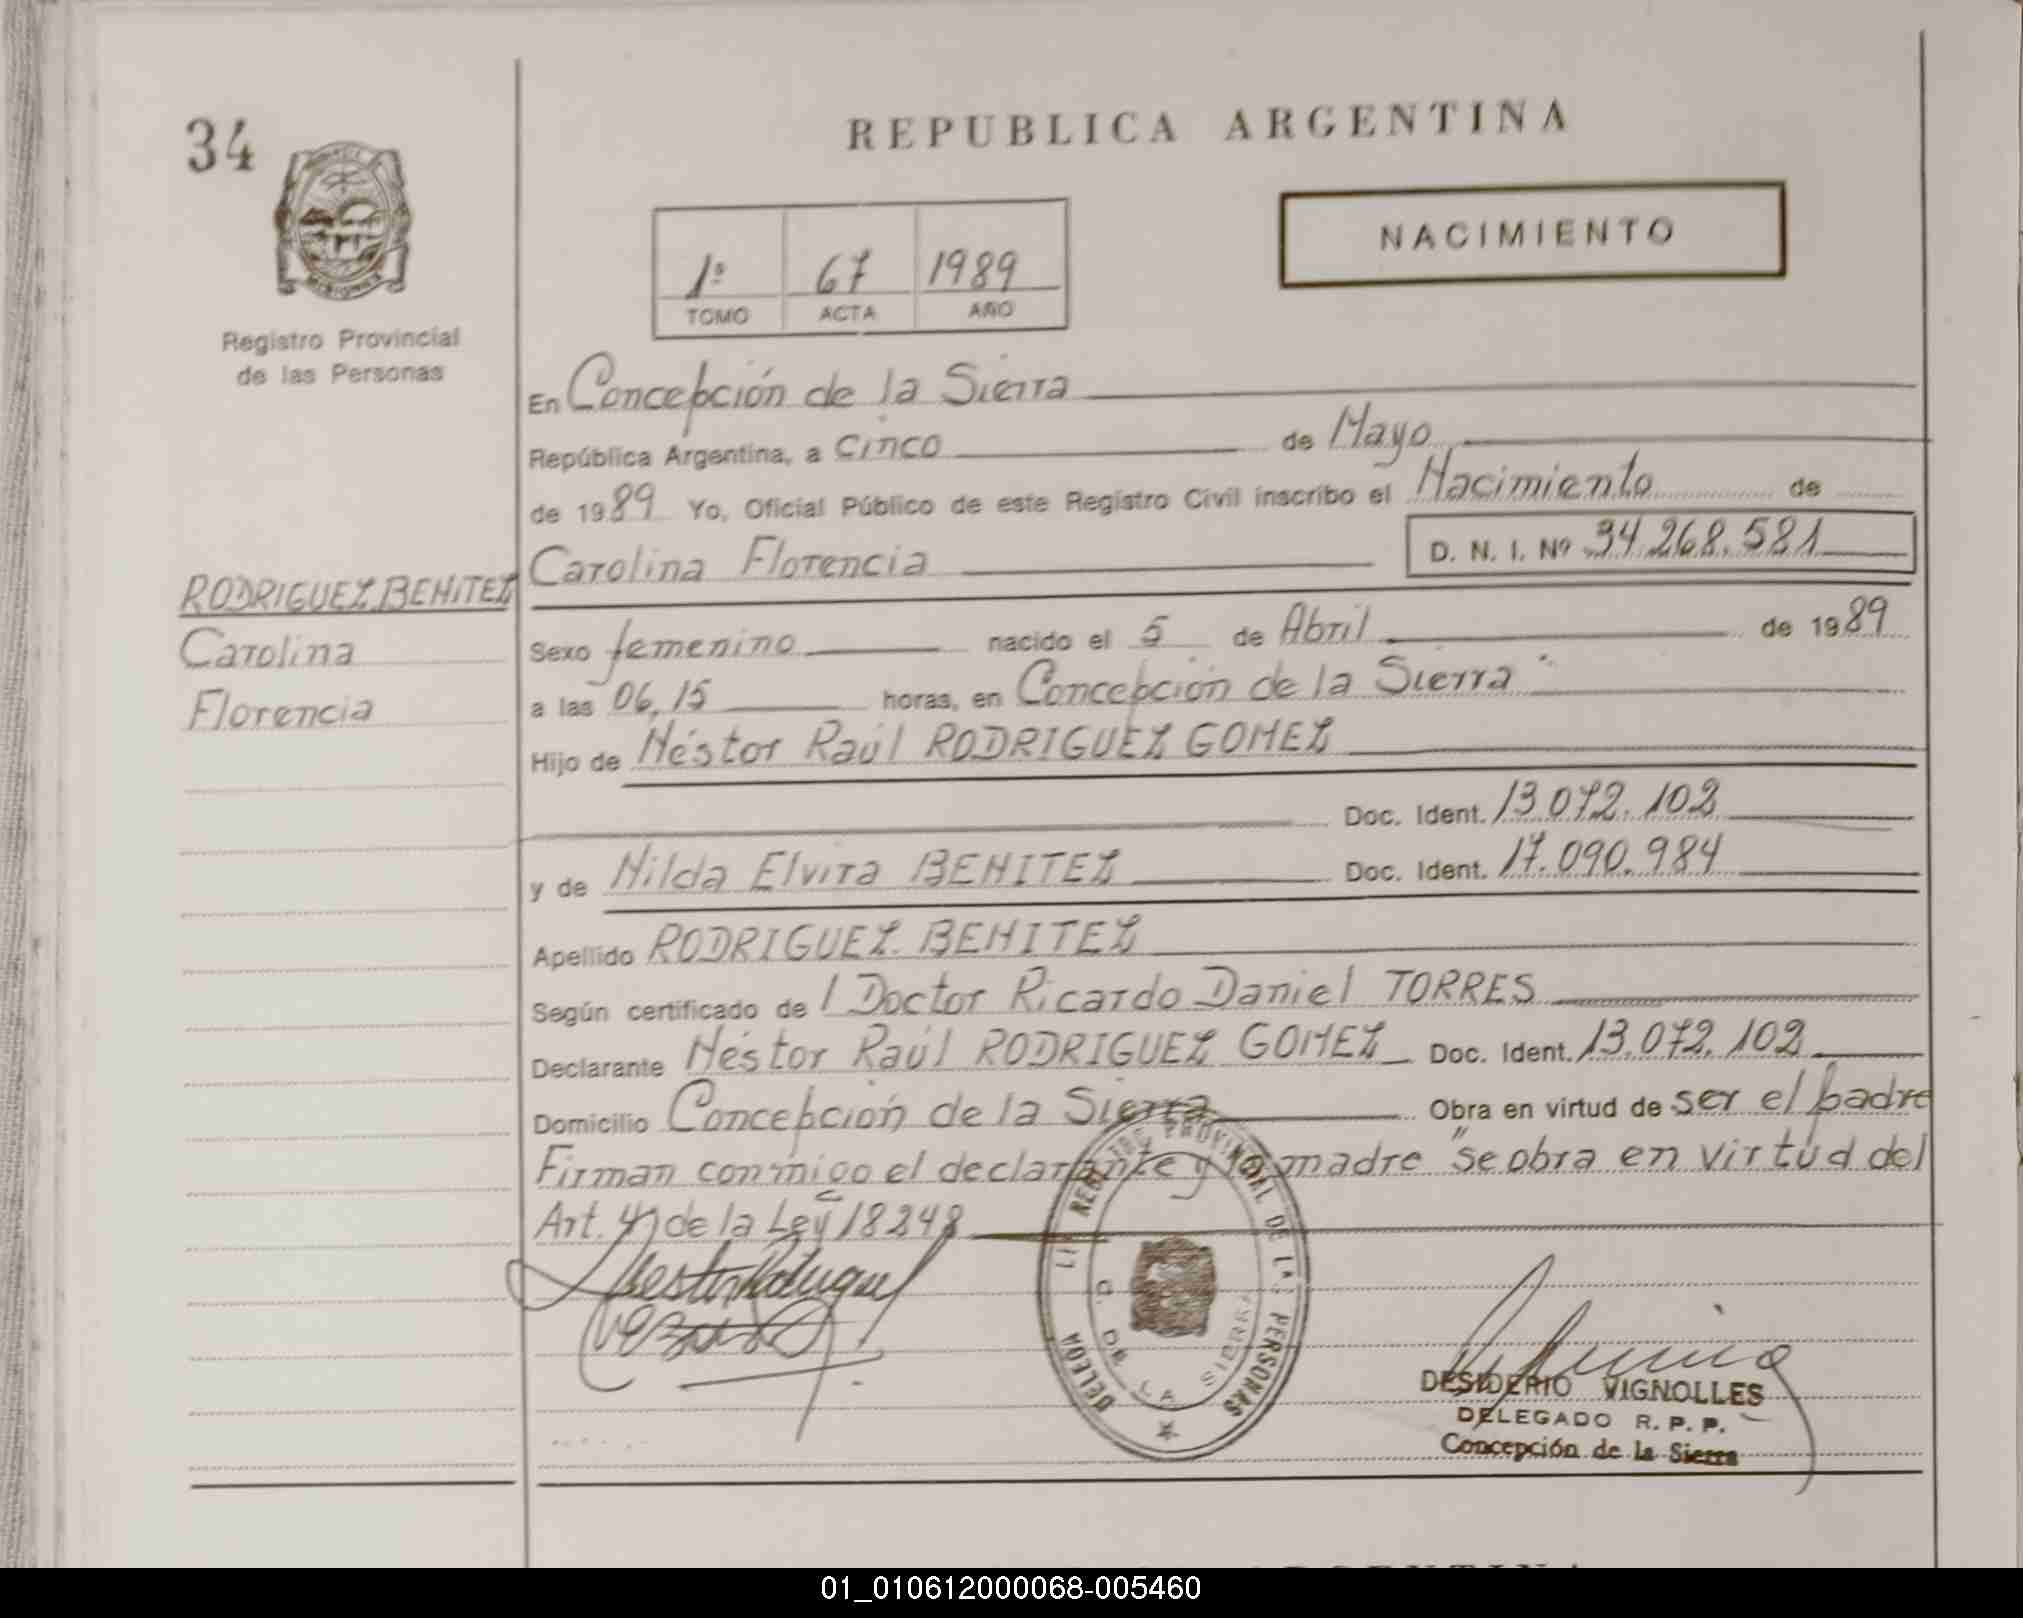 34
REPUBLICA ARGENTINA
NACIMIENTO
1º 67 1989
TOMO ACTA AÑO
Registro Provincial
de las Personas
En Concepción de la Sierra
República Argentina, a cinco de Mayo
de 1989 Yo, Oficial Público de este Registro Civil inscribo el Nacimiento de
Carolina Florencia D. N. I. Nº 34.268.581
RODRIGUEZ BENITEZ
Carolina
Florencia
Sexo femenino nacido el 5 de Abril de 1989
a las 06,15 horas, en Concepción de la Sierra
Hijo de Néstor Raúl RODRIGUEZ GOMEZ
Doc. Ident. 13.072.102
y de Nilda Elvira BENITEZ Doc. Ident. 17.090.984
Apellido RODRIGUEZ BENITEZ
Según certificado de l Doctor Ricardo Daniel TORRES
Declarante Néstor Raúl RODRIGUEZ GOMEZ Doc. Ident. 13.072.102
Domicilio Concepción de la Sierra Obra en virtud de ser el padre
Firman conmigo el declarante y la madre "se obra en virtud del
Art. 4) de la Ley 18248
REGISTRO PROVINCIAL DE LAS PERSONAS
C. DE LA SIERRA
DESIDERIO VIGNOLLES
DELEGADO R. P. P.
Concepción de la Sierra
01_010612000068-005460